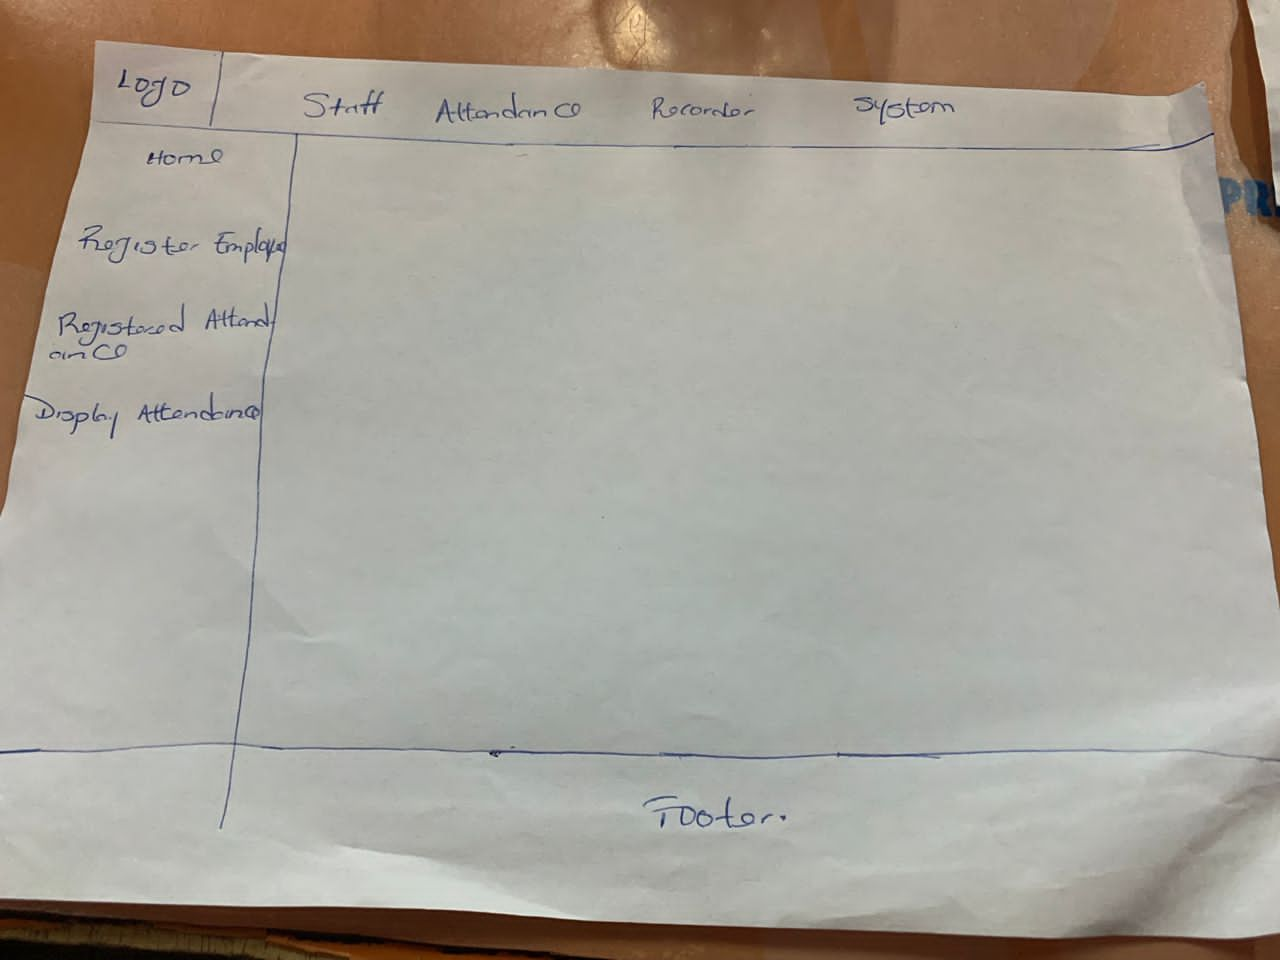 Logo
Staff Attendance Recorder System
Home
Register Employee
Registered Attend
ance
Display Attendance
Footer.
PR